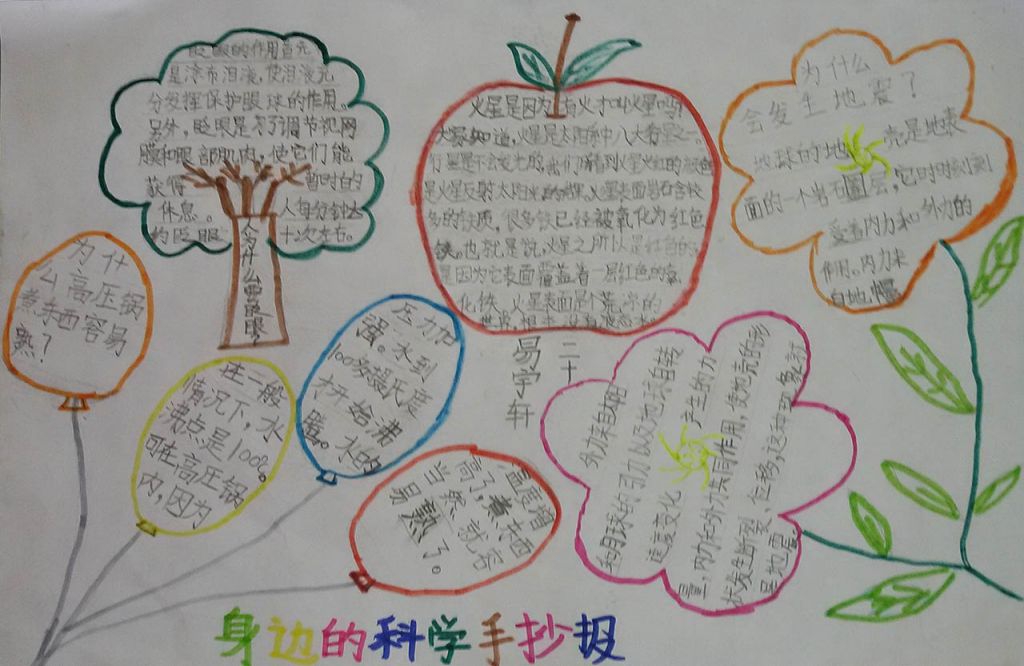 眨眼的作用首先
是涂布泪液,使泪液充
分发挥保护眼球的作用。
另外,眨眼是为了调节视网
膜和眼部肌肉,使它们能
获得 暂时的
休息。 人每分钟大
约眨眼 十次左右。
人为什么要眨眼?
火星是因为有火才叫火星吗?
大家知道,火星是太阳系中八大行星之一。
行星是不会发光的,我们看到火星火红的颜色
是火星反射太阳光的结果。火星表面岩石含较
多的铁质,很多铁已经被氧化为红色
铁。也就是说,火星之所以是红色的
是因为它表面覆盖着一层红色的氧
化铁。火星表面是个荒凉的
世界,根本没有液态水。
为什么
会发生地震?
地球的地 壳是地表
面的一个岩石圈层,它时时刻刻
受着内力和外力的
作用。内力来
自地幔
为什
么高压锅
煮东西容易
熟?
在一般
情况下,水
沸点是100℃。
可在高压锅
内,因为
压力加
强。水到
100多摄氏度
才开始沸
腾。水的
温度增
高了,煮东西
当然就容
易熟了。
二十
易宇轩
外力来自太阳
和月球的引力以及地球自转
速度变化 产生的力
量,内力和外力共同作用,使地壳的形
状发生断裂、位移,这种现象就
是地震。
身边的科学手抄报